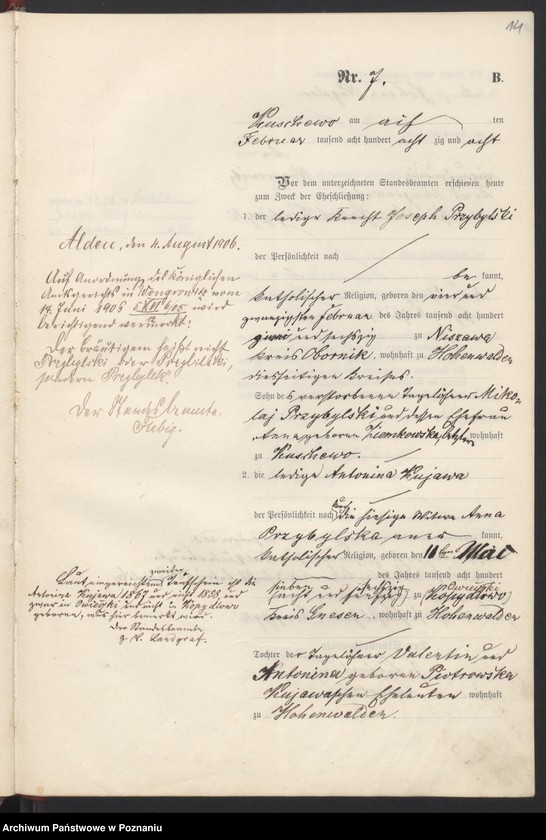 14
Nr. 7.
B.
Kuschewo am acht ten
Februar tausend acht hundert acht zig und acht
Vor dem unterzeichneten Standesbeamten erschienen heute
zum Zweck der Eheschließung:
1. der ledige Knecht Joseph Przybylski
der Persönlichkeit nach
be kannt,
katholischer Religion, geboren den vier und
zwanzigsten Februar des Jahres tausend acht hundert
zwei und sechszig zu Niszawa
Kreis Obornik, wohnhaft zu Hohenwalden
diesseitigen Kreises.
Sohn des verstorbenen Tagelöhner Miko-
laj Przybylski und dessen Ehefrau
Anna geboren Ziemkowska, letztere wohnhaft
zu Kuschewo.
2. die ledige Antonina Kujawa
der Persönlichkeit nach durch die hiesige Witwe Anna
Przybylska aner kannt,
katholischer Religion, geboren den 10ten Mai
des Jahres tausend acht hundert
sieben und sechszig zu Owieczki
Kreis Gnesen, wohnhaft zu Hohenwalden
Tochter der Tagelöhner Valentin und
Antonina geboren Piotrowska
Kujawaschen Eheleuten wohnhaft
zu Hohenwalden.
Alden, den 4. August 1906.
Auf Anordnung des königlichen
Amtsgerichts in Wongrowitz vom
14. Juni 1906 wird
berichtigend vermerkt:
Der Bräutigam heißt nicht
Przybylski oder
sondern
Der Standesbeamte.
Laut eingereichten zweiten Taufschein ist die
Antonina Kujawa 1867 und nicht 1858, und
zwar in Owieczki und nicht in Kopydlowo
geboren, was hier bemerkt wird.
Der Standesbeamte
Landgraf.
Archiwum Państwowe w Poznaniu